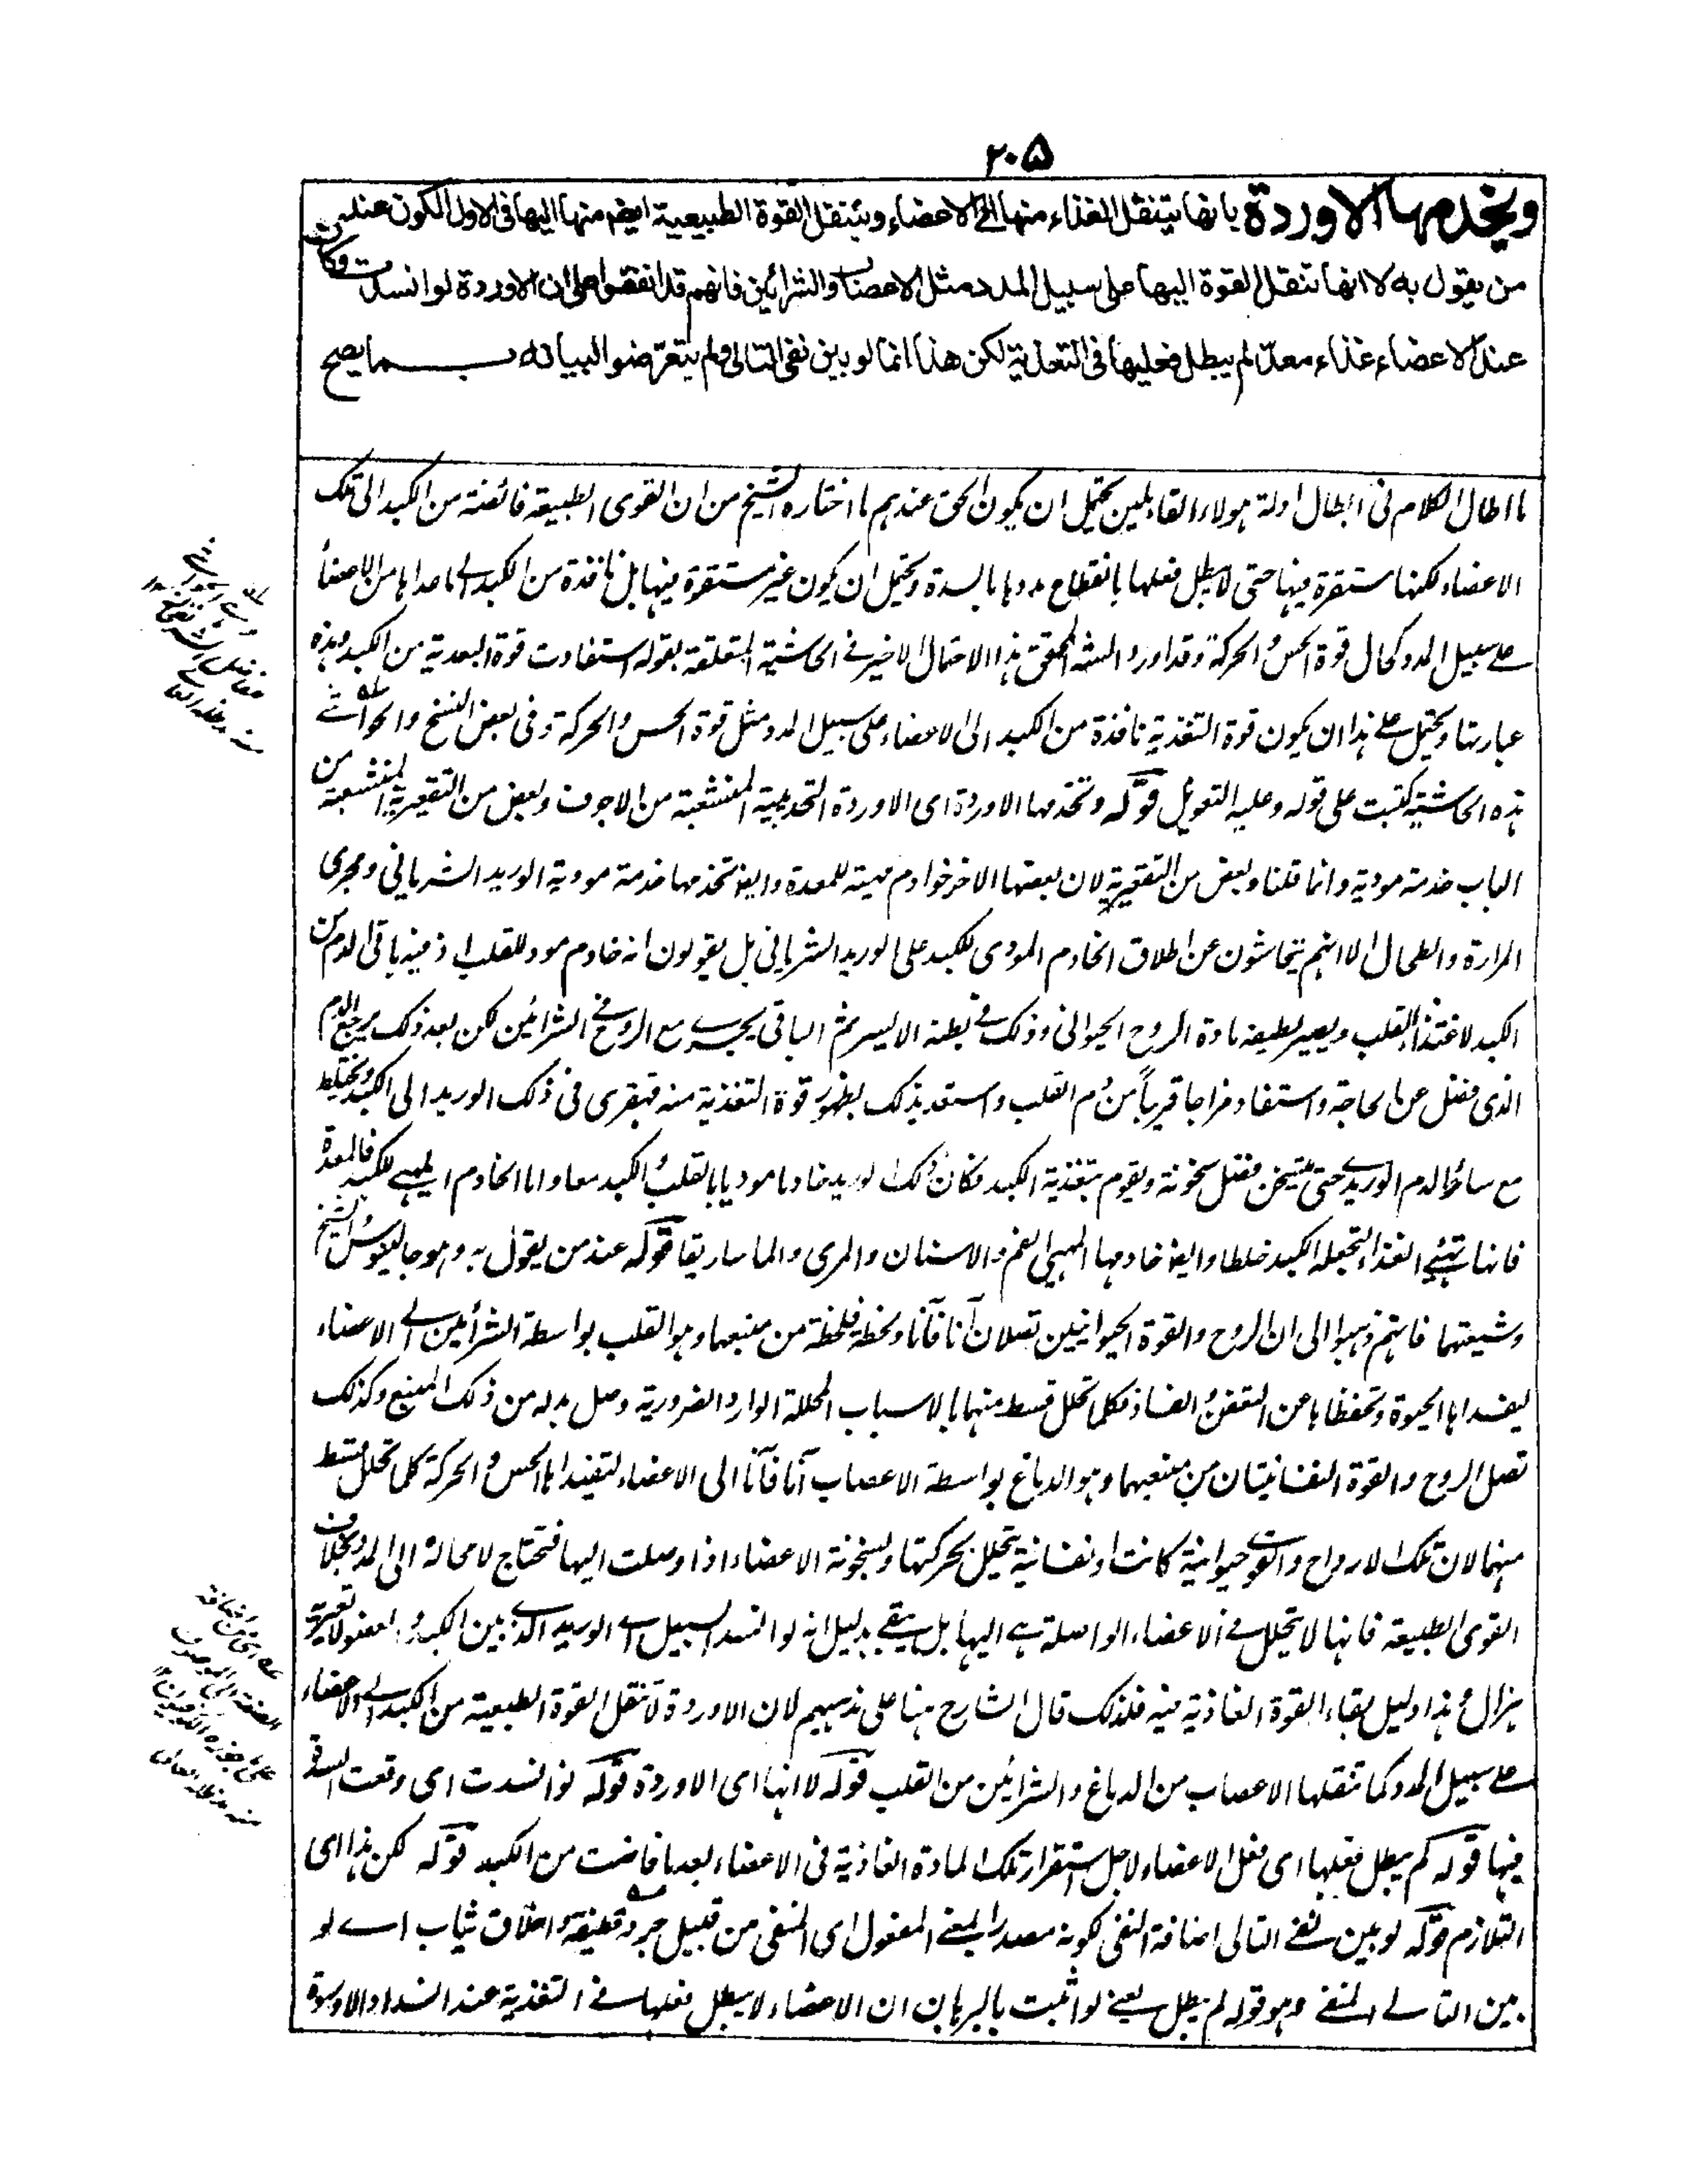 ٢٠٥
ويخدمها الاوردة بانها يتنقل الغذاء منها الى الاعضاء وينتقل القوة الطبيعية ايضم منها اليها فى الاول الكون عند
من يقول به لا انها تنقل القوة اليها على سبيل المدد مثل الاعصاب والشرائين فانهم قد اتفقوا على ان الاوردة لو انسدت وكان
عند الاعضاء غذاء معدّ لم يبطل فعليها فى التغذية لكن هذا انما لو بين نفى التالى ولم يتعرضوا لبيانه بما يصح
ما اطال الكلام فى ابطال ادلة هولاء القابلين يحتمل ان يكون الحق عندهم ما اختاره الشيخ من ان القوى الطبيعة فائضة من الكبد الى تلك
الاعضاء لكنها مستقرة فيها حتى لا يبطل فعلها بانقطاع مددها بالسدة ويحتمل ان يكون غير مستقرة فيها بل نافذة من الكبد الے ما عداها من الاعضأ
علے سبيل المدد كحال قوة الحس والحركة وقد اورد الشه المحقق هذا الاحتمال الاخير فے الحاشية المتعلقة بقوله استفادت قوة البعدية من الكبد وهذه
عبارتها ويحتمل علے هذا ان يكون قوة التغذية نافذة من الكبد الى الاعضاء على سبيل المدد مثل قوة الحس والحركة وفى بعض النسخ والحواشے
هذه الحاشية كتبت على قوله وعليه التعويل قوله وتخدمها الاوردة اى الاوردة التحديبية المنشعبة من الاجوف وبعض من التقعيرية المنشعبة من
الباب خدمة مودية وانما قلنا وبعض من التقعيرية لان بعضها الاخر خوادم مهيئة للمعدة وايضا تخدمها خدمة مودية الوريد الشريانى ومجرى
المرارة والطحال الا انهم يتحاشون عن اطلاق الخادم المودى للكبد على الوريد الشريانى بل يقولون انه خادم مود للقلب اذ فيه ياتى الدم من
الكبد لاغتذاء القلب ويصير لطيفه مادة الروح الحيوانى وذلك فے بطنه الايسر ثم الباقى يجرے مع الروح فے الشرائين لكن بعد ذلك يرجع الدم
الذى فضل عن الحاجة واستفاد مزاجا قريباً من دم القلب واستعد بذلك لظهور قوة التغذية منه قهقرى فى ذلك الوريد الى الكبد ويختلط
مع سائر الدم الوريدے حتى يتسخن فضل سخونة ويقوم بتغذية الكبد فكان ذلك الوريد خادما موديا بالقلب والكبد معا واما الخادم المهيے للكبد فالمعدة
فانها تهيئ الغذاء لتجعله الكبد خلطا وايضا خادمها المهيى الفم والاسنان والمرى والماساريقا قوله عند من يقول به وهو جالينوس والشيخ
وشيعتهما فانهم ذهبوا الى ان الروح والقوة الحيوانيين تصلان آنا فآنا ولحظة فلحظة من منبعهما وهو القلب بواسطة الشرائين الے الاعضاء
ليفيداها الحيوة وتحفظاها عن التعفن والفساد فكلما تحلل قسط منهما بالاسباب المحللة الوارد الضرورية وصل بدله من ذلك المنبع وكذلك
تصل الروح والقوة النفسانيتان من منبعهما وهو الدماغ بواسطة الاعصاب آنا فآنا الى الاعضاء لتفيداها الحس والحركة كلما تحلل قسط
منهما لان تلك الارواح والقوى حيوانية كانت او نفسانية يتحلل بحركتها وبسخونة الاعضاء اذا وصلت اليها فتحتاج لا محالة الى المدد بخلاف
القوى الطبيعة فانها لا يتحلل فے الاعضاء الواصلة هے اليها بل يبقے بدليل انه لو انسد السبيل اے الوريد الذے بين الكبد والعضو لا يعتريه
هزال وهذا دليل بقاء القوة الغاذية فيه فلذلك قال الشارح هنا على مذهبهم لان الاوردة لا تنقل القوة الطبيعية من الكبد الے الاعضاء
علے سبيل المدد كما تنقلها الاعصاب من الدماغ والشرائين من القلب قوله لا انها اى الاوردة قوله لو انسدت اى وقعت السدة
فيها قوله لم يبطل فعلها اى فعل الاعضاء لاجل استقرار تلك المادة الغاذية فى الاعضاء بعد ما فاضت من الكبد قوله لكن هذا اى
التلازم قوله لو بين نفے التالى اضافة النفى لكونه مصدرا بمعنے المفعول اى المنفى من قبيل جرد قطيفة واخلاق ثياب اے لو
بين التالے المنفے وهو قوله لم يبطل يعنے لو اثبت بالبرهان ان الاعضاء لا يبطل فعلها فے التغذية عند انسداد الاوردة